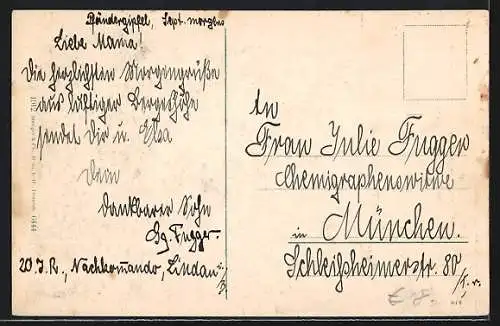 Pfändergipfel, Sept. morgens
Liebe Mama!
Die herzlichsten Morgengrüße
aus luftiger Bergeshöhe
sendet Dir u. Elsa
Dein
dankbarer Sohn
Gg. Fugger.
20 I. R., Nachkommando, Lindau i/B
An
Frau Julie Fugger
Chemigraphenswitwe
in München.
Schleißheimerstr. 80
/I. r.